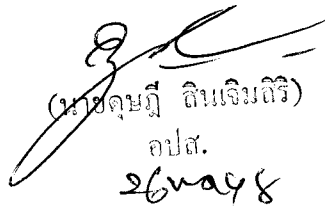 (นายดุษฎี สินเจิมสิริ)
อปส.
26 พค 48